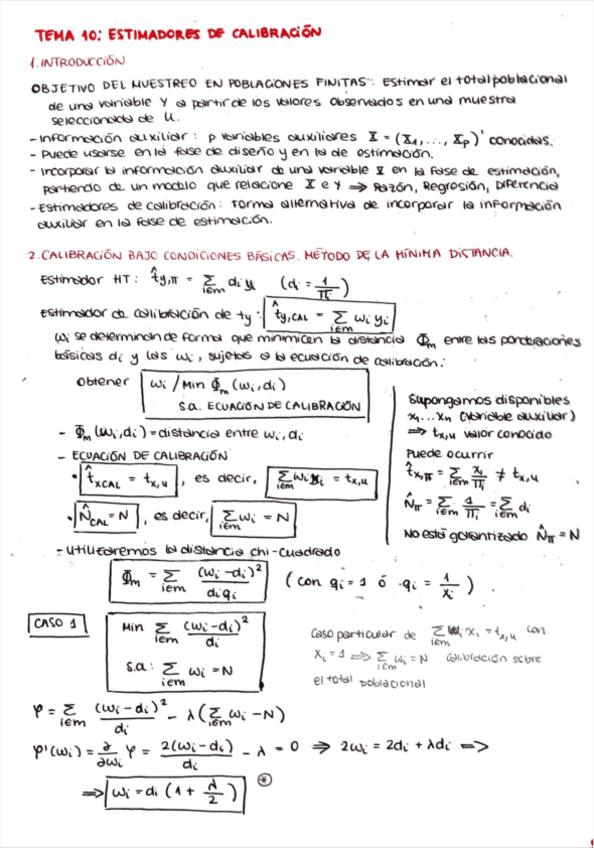 TEMA 10: ESTIMADORES DE CALIBRACIÓN
1. INTRODUCCIÓN
OBJETIVO DEL MUESTREO EN POBLACIONES FINITAS: Estimar el total poblacional
de una variable Y a partir de los valores observados en una muestra
seleccionada de U.
- Información auxiliar: p variables auxiliares X = (X1, ..., Xp)' conocidas.
- Puede usarse en la fase de diseño y en la de estimación.
- Incorporar la información auxiliar de una variable X en la fase de estimación,
partiendo de un modelo que relacione X e Y ⇒ Razón, Regresión, Diferencia
- Estimadores de calibración: Forma alternativa de incorporar la información
auxiliar en la fase de estimación.
2. CALIBRACIÓN BAJO CONDICIONES BÁSICAS. MÉTODO DE LA MÍNIMA DISTANCIA.
Estimador HT: t̂y,π = Σ i∈m di yi (di = 1/πi)
Estimador de calibración de ty: t̂y,CAL = Σ i∈m wi yi
wi se determinan de forma que minimicen la distancia Φm entre las ponderaciones
básicas di y las wi, sujetos a la ecuación de calibración:
Obtener wi / Min Φm (wi, di)
s.a. ECUACIÓN DE CALIBRACIÓN
- Φm (wi, di) = distancia entre wi, di
- ECUACIÓN DE CALIBRACIÓN
• t̂xCAL = tx,u, es decir, Σ i∈m wi xi = tx,u
• N̂CAL = N, es decir, Σ i∈m wi = N
Supongamos disponibles
x1...xn (variable auxiliar)
⇒ tx,u valor conocido
Puede ocurrir
t̂x,π = Σ i∈m xi/πi ≠ tx,u
N̂π = Σ i∈m 1/πi = Σ i∈m di
No está garantizado N̂π = N
- Utilizaremos la distancia chi-cuadrado
Φm = Σ i∈m (wi-di)²/di qi (con qi = 1 ó qi = 1/xi).
CASO 1
Min Σ i∈m (wi-di)²/di
s.a: Σ i∈m wi = N
Caso particular de Σ i∈m wi xi = tx,u con
xi = 1 ⇒ Σ i∈m wi = N calibración sobre
el total poblacional
φ = Σ i∈m (wi-di)²/di - λ(Σ i∈m wi - N)
φ'(wi) = ∂/∂wi φ = 2(wi-di)/di - λ = 0 ⇒ 2wi = 2di + λdi ⇒
⇒ wi = di (1 + λ/2) ⊛